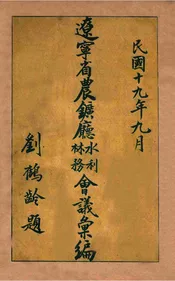 民國十九年九月
遼寧省農鑛廳水利林務會議彙編
劉鶴齡題